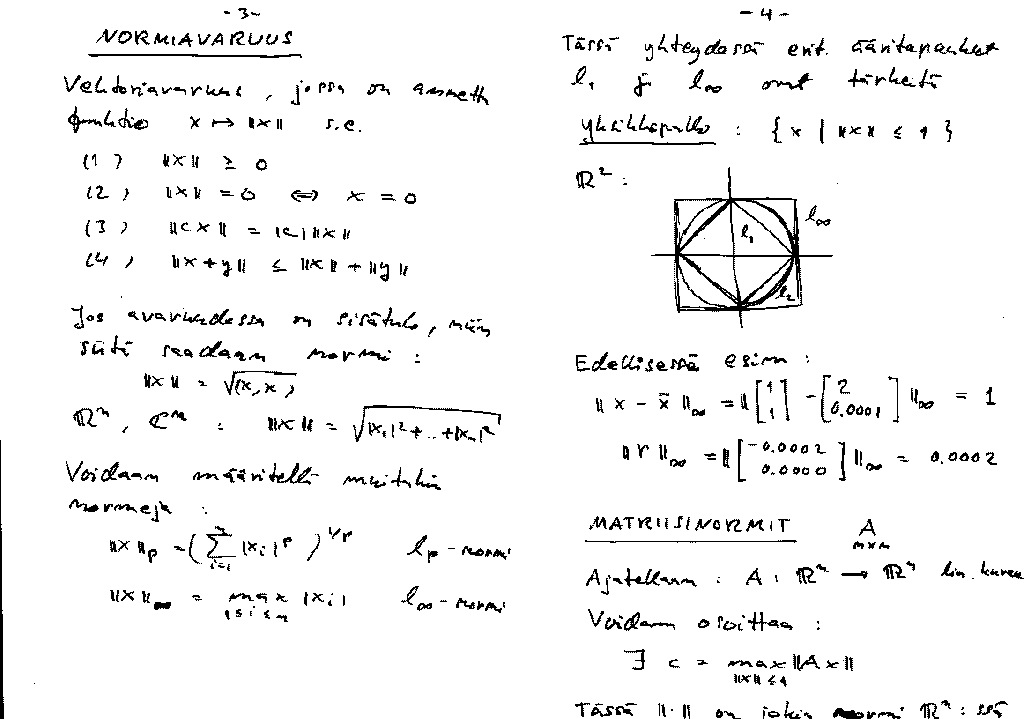 - 3 -
NORMIAVARUUS
Vektoriavaruus, jossa on annettu
funktio x ↦ ‖x‖ s.e.
(1) ‖x‖ ≥ 0
(2) ‖x‖ = 0 ⇔ x = 0
(3) ‖cx‖ = |c| ‖x‖
(4) ‖x + y‖ ≤ ‖x‖ + ‖y‖
Jos avaruudessa on sisätulo, niin
siitä saadaan normi :
‖x‖ = √(x, x)
ℝⁿ, ℂⁿ : ‖x‖ = √|x₁|² + .. + |xₙ|²
Voidaan määritellä muitakin
normeja :
‖x‖ₚ = (∑ᵢ₌₁ⁿ |xᵢ|ᵖ)^1/p lₚ - normi
‖x‖∞ = max |xᵢ| l∞ - normi
1 ≤ i ≤ n
- 4 -
Tässä yhteydessä erit. ääritapaukset
l₁ ja l∞ ovat tärkeitä
yksikköpallo : { x | ‖x‖ ≤ 1 }
ℝ² :
l∞
l₁
l₂
Edellisessä esim :
‖ x - x̃ ‖∞ = ‖ [1 1] - [2 0.0001] ‖∞ = 1
‖ r ‖∞ = ‖ [-0.0002 0.0000] ‖∞ = 0.0002
MATRIISINORMIT A
n×n
Ajatellaan : A : ℝⁿ → ℝⁿ lin. kuvau
Voidaan osoittaa :
∃ c = max ‖Ax‖
‖x‖ ≤ 1
Tässä ‖·‖ on jokin normi ℝⁿ : ssä